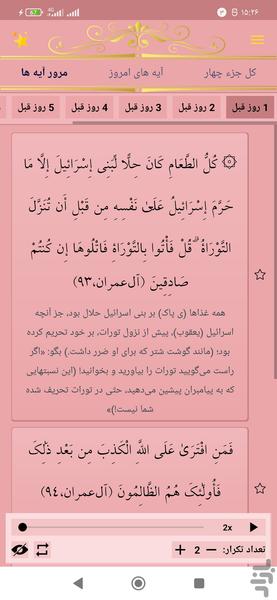 ۱۵:۲۶
67
4G
کل جزء چهار
آیه های امروز
مرور آیه ها
1 روز قبل
2 روز قبل
3 روز قبل
4 روز قبل
5 روز قبل
۞ كُلُّ الطَّعَامِ كَانَ حِلًّا لِّبَنِي إِسْرَائِيلَ إِلَّا مَا
حَرَّمَ إِسْرَائِيلُ عَلَىٰ نَفْسِهِ مِن قَبْلِ أَن تُنَزَّلَ
التَّوْرَاةُ ۗ قُلْ فَأْتُوا بِالتَّوْرَاةِ فَاتْلُوهَا إِن كُنتُمْ
صَادِقِينَ (آل‌عمران،۹۳)
همه غذاها (ی پاک) بر بنی اسرائیل حلال بود، جز آنچه
اسرائیل (یعقوب)، پیش از نزول تورات، بر خود تحریم کرده
بود؛ (مانند گوشت شتر که برای او ضرر داشت.) بگو: «اگر
راست می‌گویید تورات را بیاورید و بخوانید! (این نسبتهایی
که به پیامبران پیشین می‌دهید، حتّی در تورات تحریف شده
شما نیست!)»
فَمَنِ افْتَرَىٰ عَلَى اللَّهِ الْكَذِبَ مِن بَعْدِ ذَٰلِكَ
فَأُولَٰئِكَ هُمُ الظَّالِمُونَ (آل‌عمران،۹۴)
2x
تعداد تکرار:
− 2 +
بازار